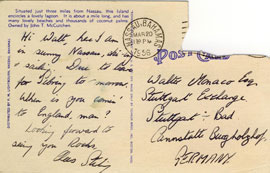 Situated just three miles from Nassau, this Island
encircles a lovely lagoon. It is about a mile long, and has
many lovely beaches and thousands of coconut palms.
Owned by John T. McCutchen.
NASSAU-BAHAMAS
MAR 20
PM
1956
POST CARD
Hi Walt, has I am
in sunny Nassau,
said. Due to leave
for Lisbon to-morrow
When is you comin'
to England, man?
Looking forward to
seeing you
Walter Monaco Esq.
Stuttgart Exchange
Stuttgart - Bad
Cannstatt Burgholzhof
GERMANY